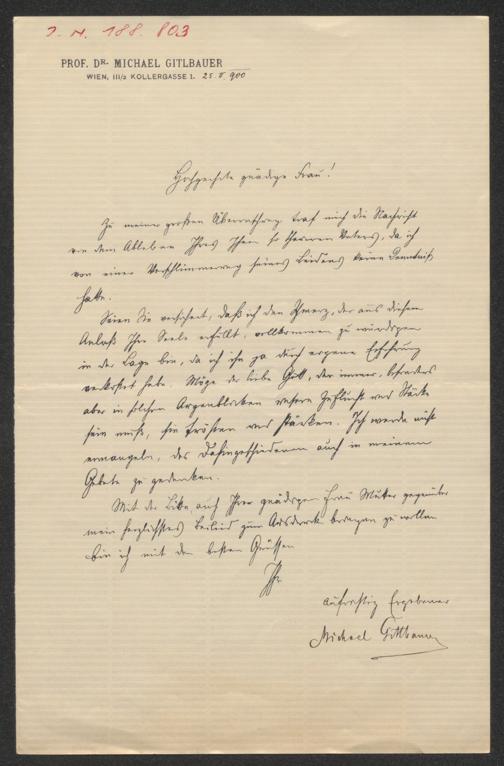 I. N. 188.803
PROF. DR. MICHAEL GITLBAUER
WIEN, III/2 KOLLERGASSE 1. 25. V. 900
Hochgeehrte gnädige Frau!
Zu meiner großen Überraschung traf mich die Nachricht
von dem Ableben Ihres Ihnen so theueren Vaters, da ich
von einer Verschlimmerung seines Leidens keine Kenntniß
hatte.
Seien Sie versichert, daß ich den Schmerz, der aus diesem
Anlaß Ihre Seele erfüllt, vollkommen zu würdigen
in der Lage bin, da ich ihn ja durch eigene Erfahrung
verkostet habe. Möge der liebe Gott, der immer, besonders
aber in solchen Augenblicken unsere Zuflucht und Stärke
sein muß, Sie trösten und stärken. Ich werde nicht
ermangeln, des Dahingeschiedenen auch in meinem
Gebete zu gedenken.
Mit der Bitte, auch Ihrer gnädigen Frau Mutter gegenüber
mein herzlichstes Beileid zum Ausdruck bringen zu wollen
bin ich mit den besten Grüssen
Ihr
aufrichtig Ergebener
Michael Gitlbauer